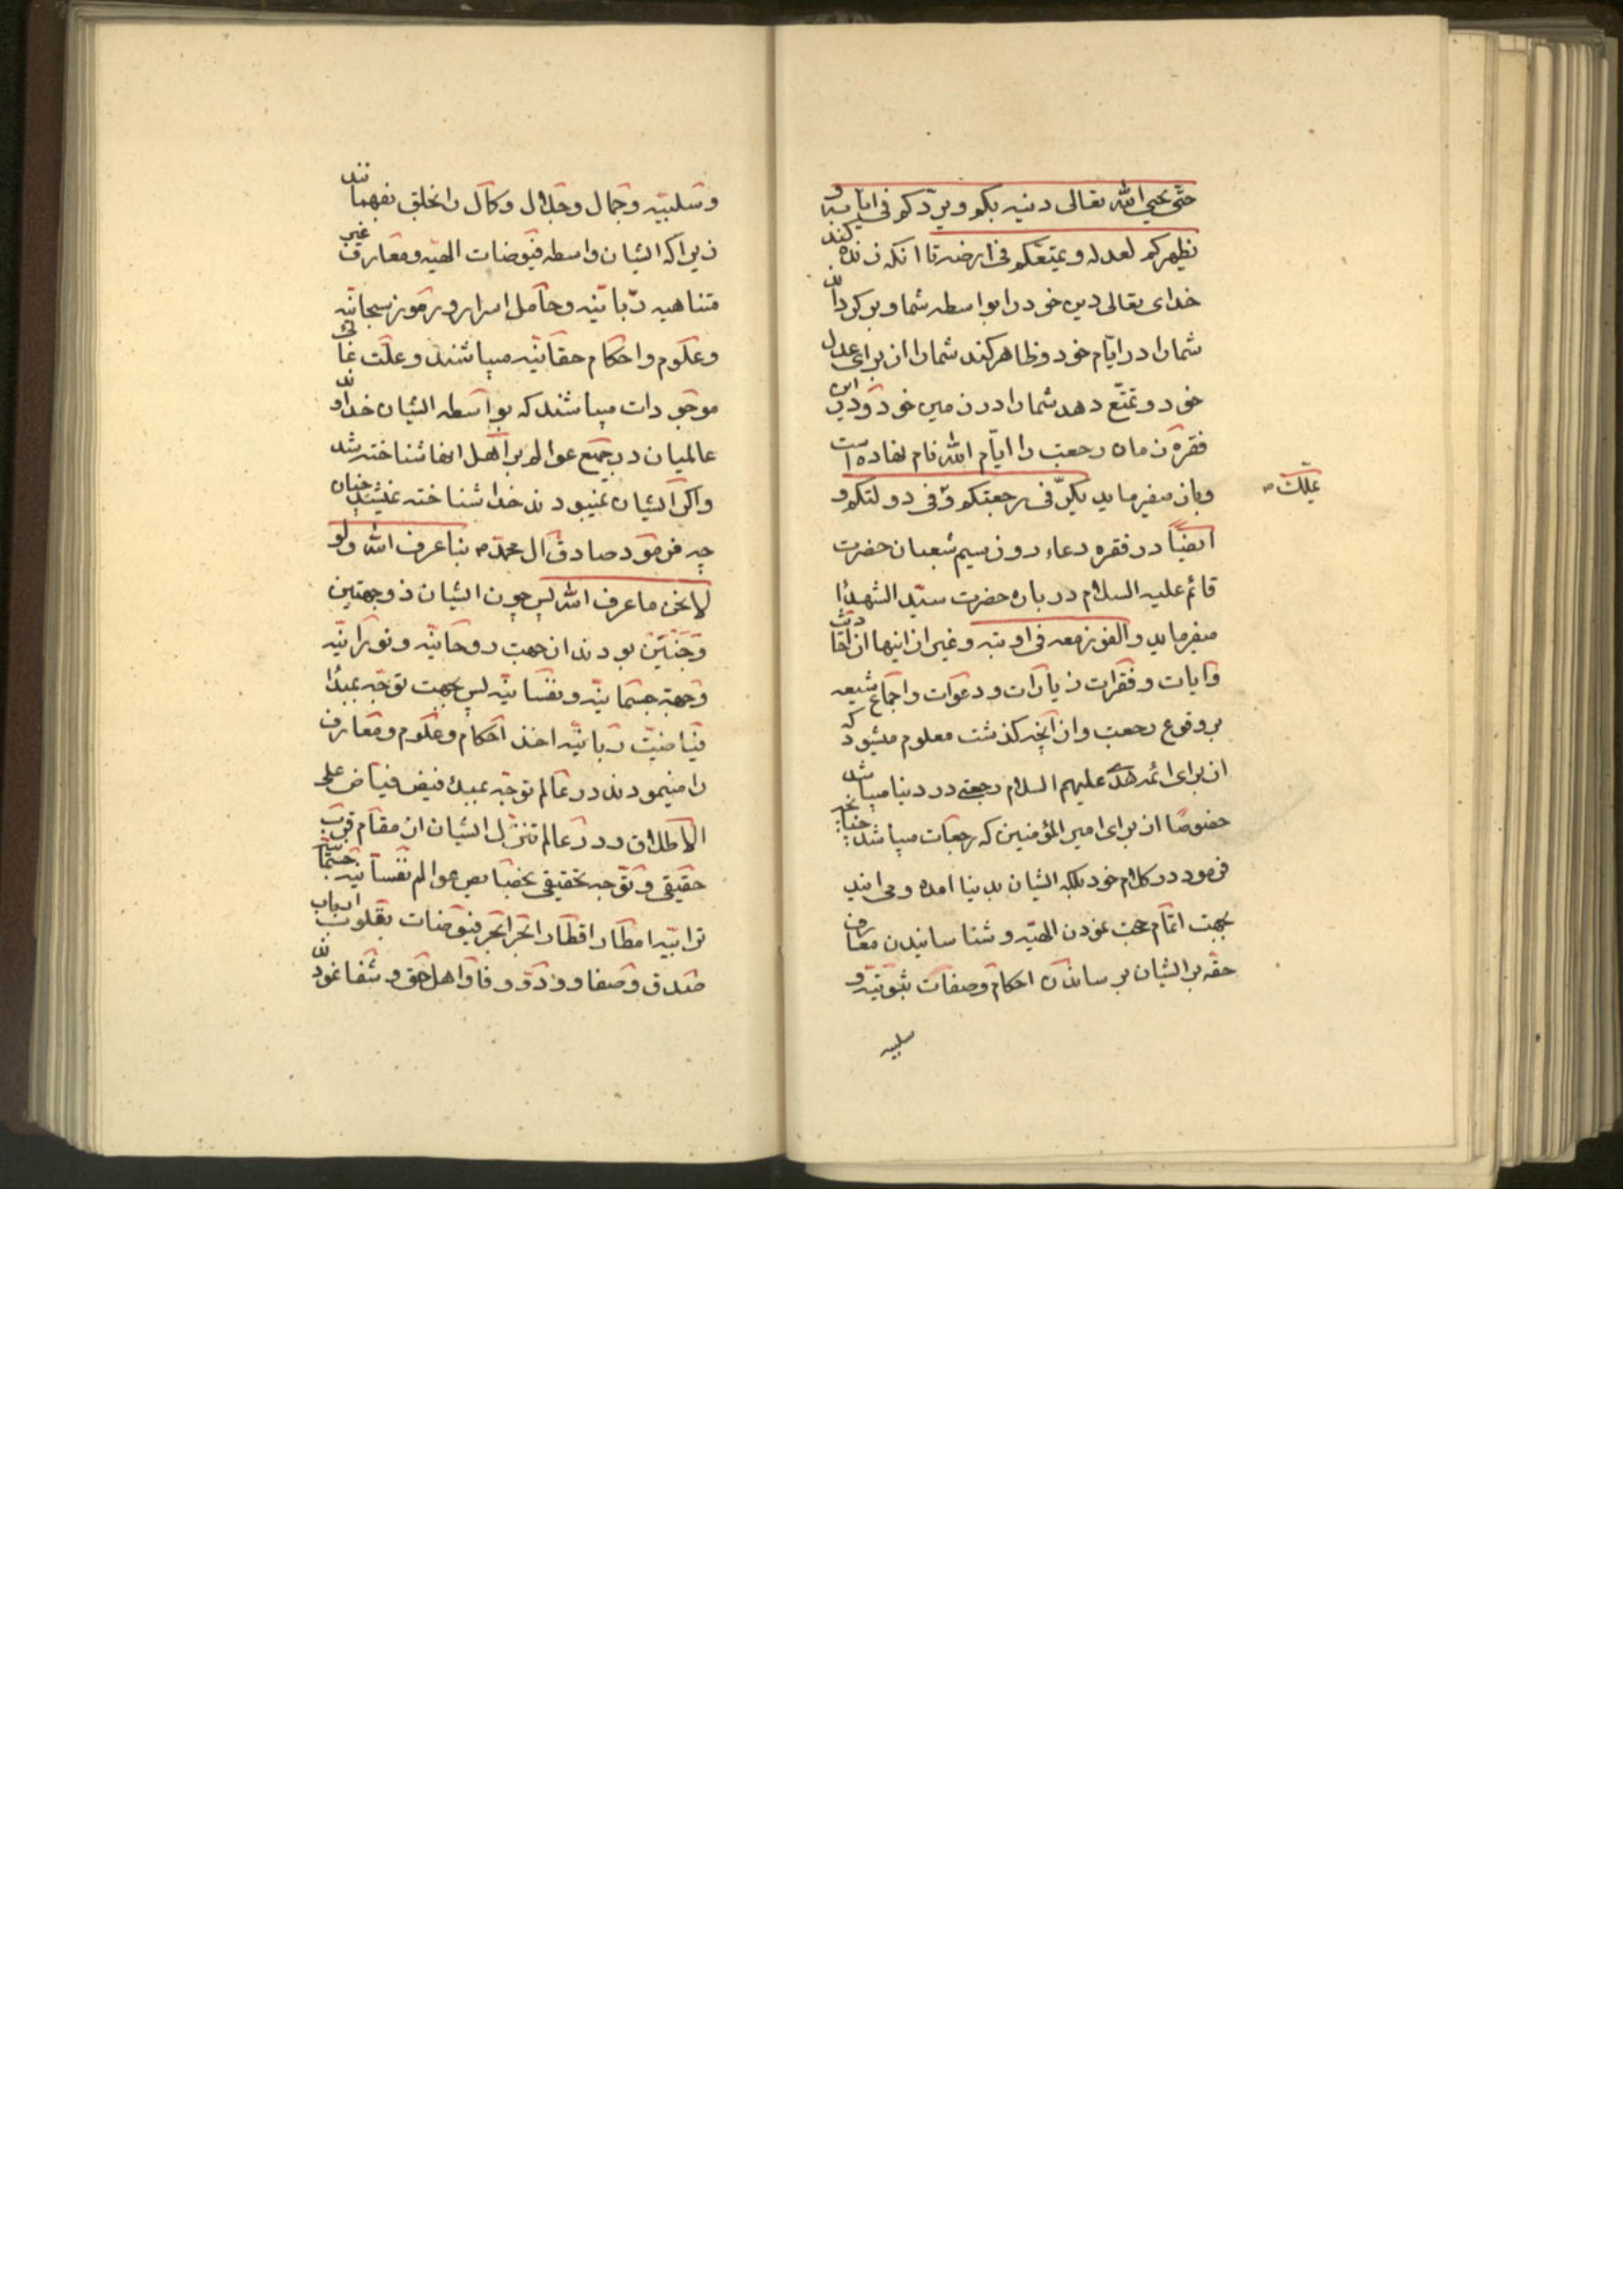 حتّی یحیی الله تعالی دینه بکم و یردّکم فی ایّامه و
یظهرکم لعدله و یمتعکم فی ارضه تا انکه زنده کند
خدای تعالی دین خود را بواسطه شما و برکرداند
شما را در ایّام خود و ظاهر کند شما را از برای عدل
خود و تمتّع دهد شما را در زمین خود و درین
فقره زمان رجعت را ایّام الله نام نهاده است
و باز میفرماید یکرّ فی رجعتکم و فی دولتکم و
یملّک ص
ایضاً در فقره دعاء روز سیم شعبان حضرت
قائم علیه السلام در باره حضرت سیّد الشهدا
میفرماید و الفوز معه فی اوبته و غیر از اینها از احادیث
و ایات و فقرات زیارات و دعوات و اجماع شیعه
بر وقوع رجعت و از آنچه کذشت معلوم میشود که
از برای ائمه هدی علیهم السلام رجعتی در دنیا میباشد
خصوصًا از برای امیر المؤمنین که رجعات میباشد چنانچه
فرمود در کلام خود بلکه ایشان بدنیا امده و می ایند
بجهت اتمام حجت نمودن الهیّه و شناسانیدن معارف
حقّه بر ایشان برساندن احکام و صفات ثبوتیّه و
سلبیه
و سلبیّه و جمال و جلال و کمال را بخلق بفهمانند
زیرا که ایشان واسطه فیوضات الهیّه و معارف غیر
متناهیه ربّانیّه و حامل اسرار و رموز سبحانیّه
و علوم و احکام حقانیّه میباشند و علّت غائی
موجودات میباشند که بواسطه ایشان خداوند
عالمیان در جمیع عوالم بر اهل انها شناخته شد
و اکر ایشان نمیبودند خدا شناخته نمیشد چنان
چه فرمود صادق ال محمّد ص بنا عرف الله و لو
لا نحن ما عرف الله پس چون ایشان ذو جهتین
و جنبتین بودند از جهت روحانیّه و نورانیّه
و جهة جسمانیّه و نفسانیّه پس بجهت توجّه بمبدأ
فیاضیّت ربانیّه اخذ احکام و علوم و معارف
را مینمودند در عالم توجّه بمبدء فیض فیاض علی
الاطلاق و در عالم تنزّل ایشان از مقام قرب
حقیقی و توجه تحقیقی بخصایص عوالم نفسانیّه جسمانیّه
ترابیّه امطار اقطار ابحر ابحر فیوضات بقلوب ارباب
صدق و صفا و ودّ و وفا و اهل حق و شفا نمودند